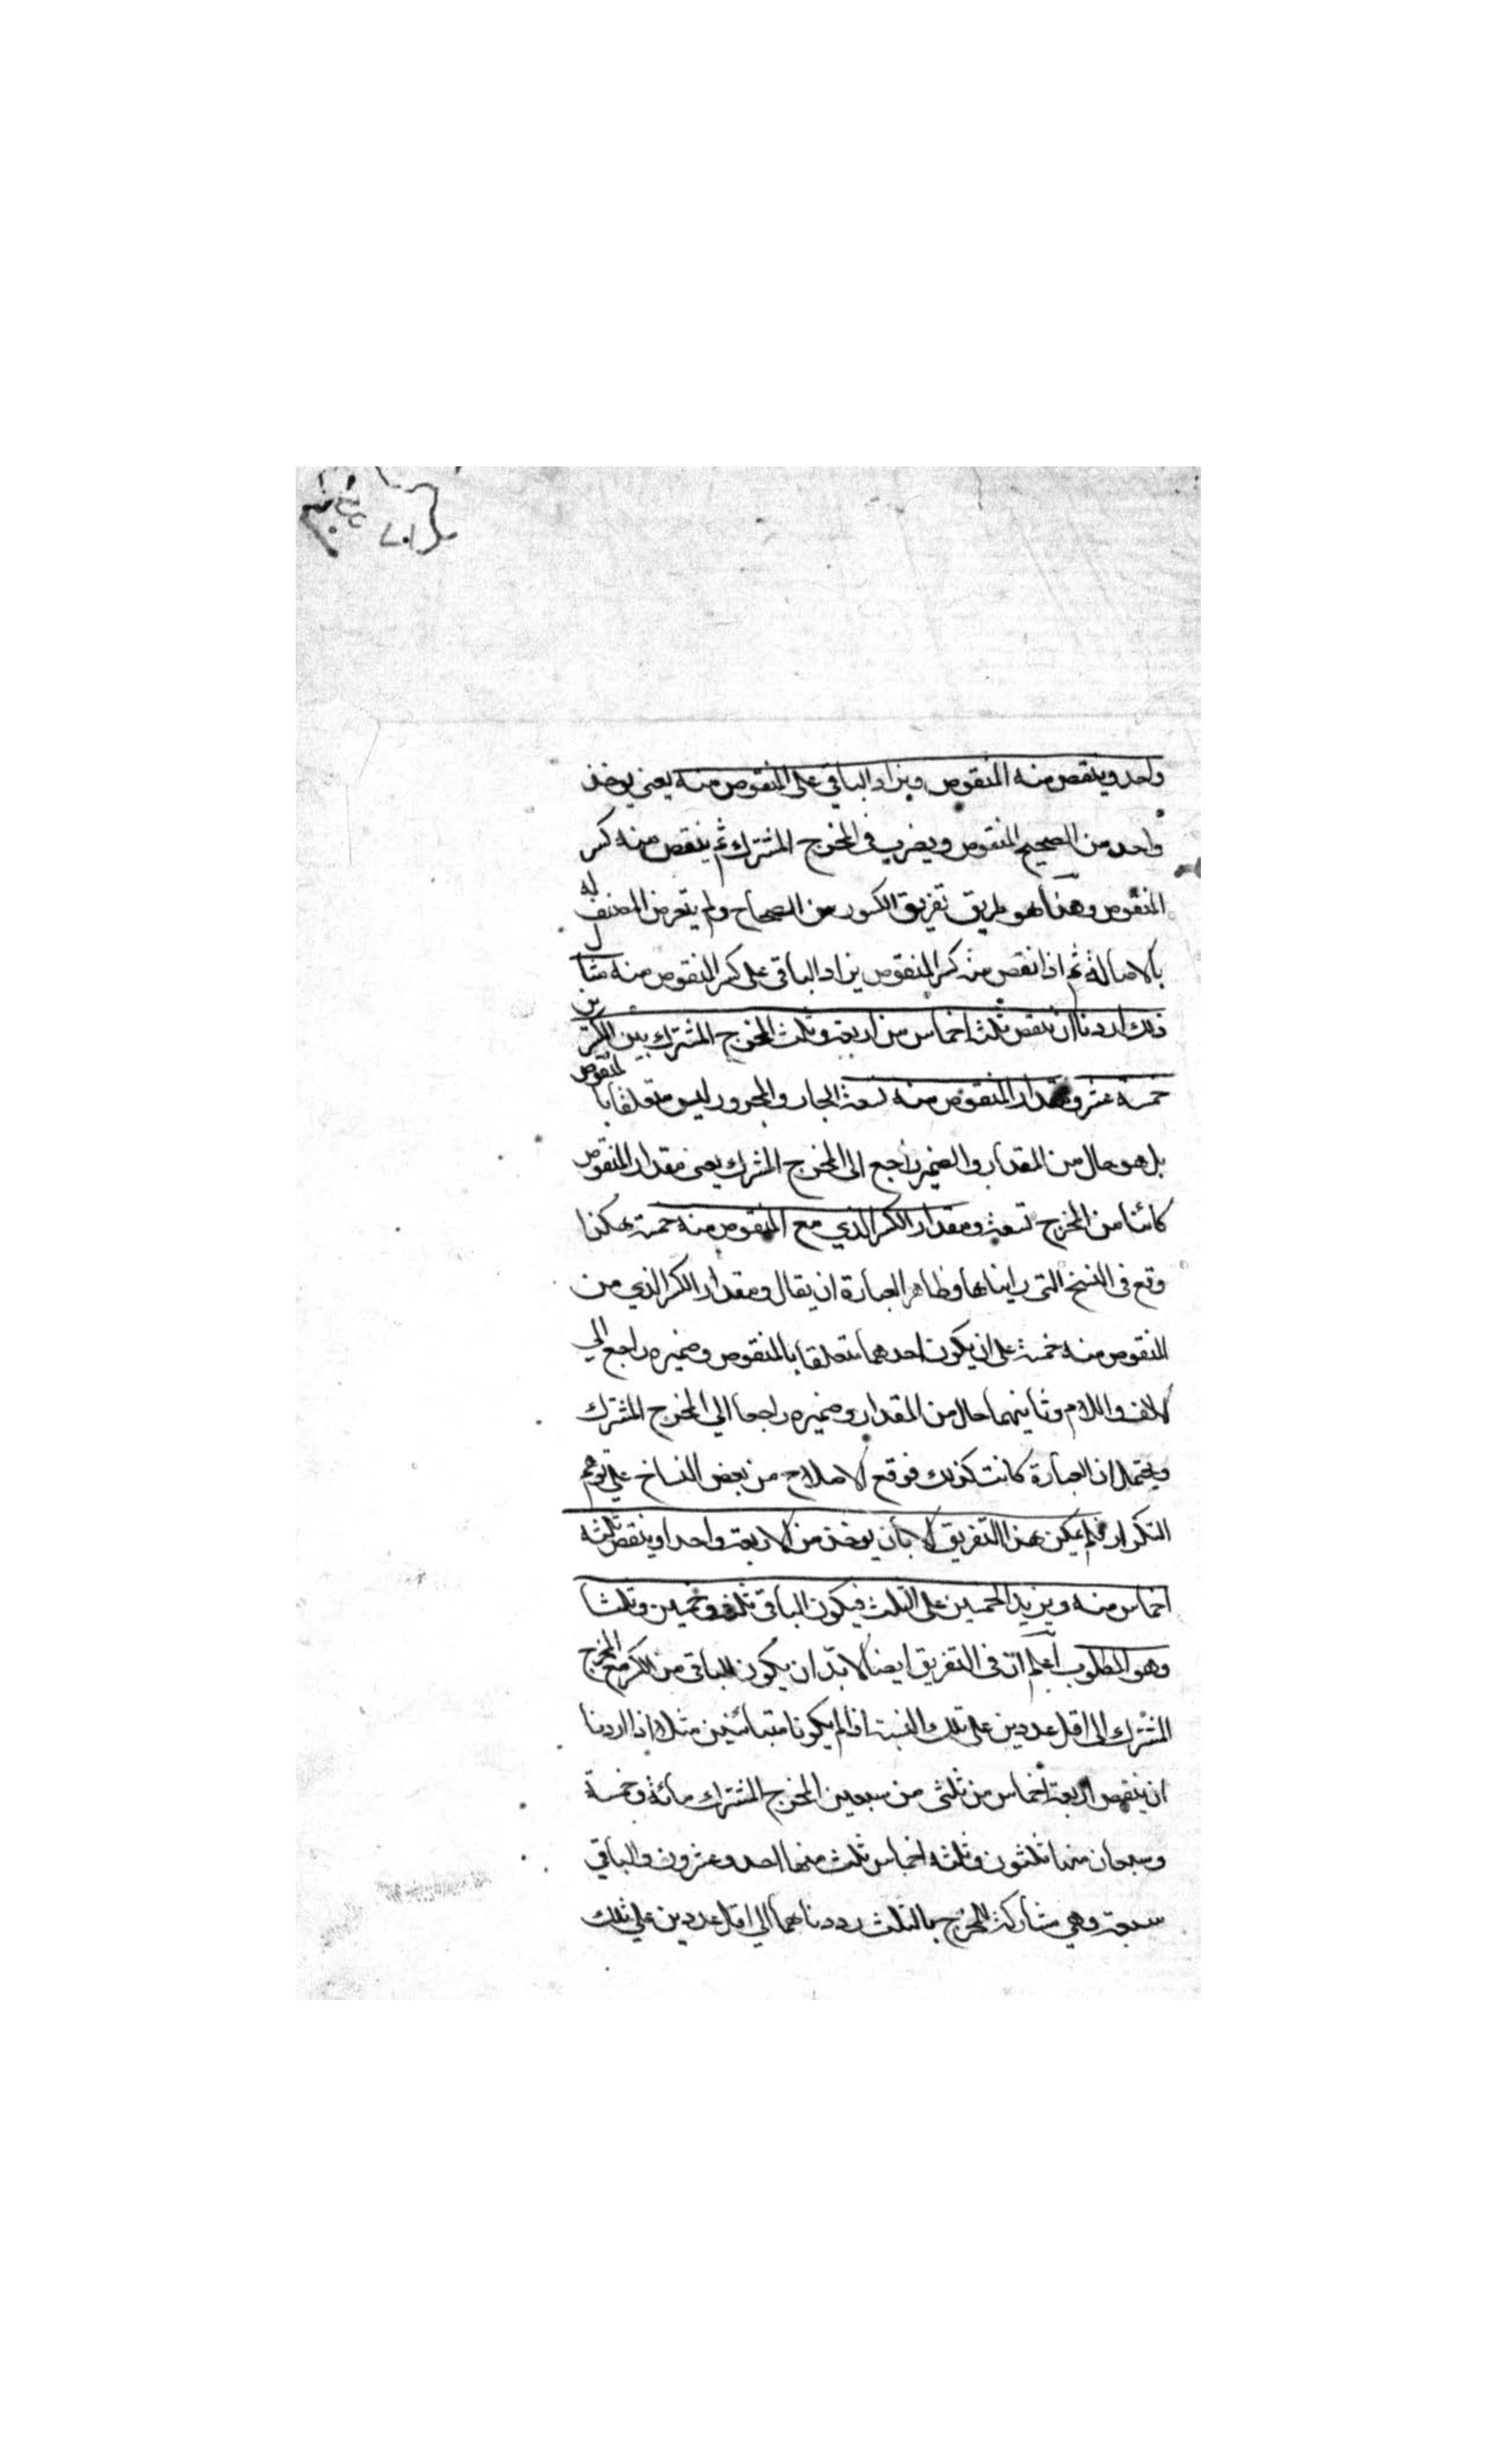 واحد وينقص منه المنقوص ويزاد الباقي على المنقوص منه يعنى يوخذ
واحد من الصحيح المنقوص ويضرب فى المخرج المشترك ثم ينقص منه كسر
المنقوص وهذا هو طريق تفريق الكسور من الصحاح ولم يتعرض المصنف له
بالاصالة ثم اذا نقص منه كسر المنقوص يزاد الباقى على كسر المنقوص منه مثال
ذلك اردنا ان ننقص ثلثة اخماس من اربعة وثلث المخرج المشترك بين الكسرين
خمسة عشر ومقدار المنقوص منه تسعة الجار والمجرور ليس متعلقا بالمنقوص
بل هو حال من المقدار والضمير راجع الى المخرج المشترك يعنى مقدار المنقوص
كائنا من المخرج تسعة ومقدار الكسر الذي مع المنقوص منه خمسة هكذا
وقع فى النسخ التى رايناها وظاهر العبارة ان يقال ومقدار الكسر الذي من
المنقوص منه خمسة على ان يكون احدهما متعلقا بالمنقوص وضميره راجع الى
الالف واللام وثانيهما حال من المقدار وضميره راجعا الى المخرج المشترك
ويحتمل ان العبارة كانت كذلك فوقع الاصلاح من بعض النساخ على توهم
التكرار فلم يمكن هذا التفريق الا بأن يوخذ من الاربعة واحد او ينقص ثلثة
اخماس منه ويزيد الخمسين على الثلث فيكون الباقى ثلثة وخمسين وثلثا
وهو المطلوب اعلم ان فى التفريق ايضا لابد ان يكون الباقى من الكسر مع المخرج
المشترك الى اقل عددين على تلك النسبة اذا لم يكونا متبائنين مثلا اذا اردنا
ان ننقص اربعة اخماس من ثلثى من سبعين المخرج المشترك مائة وخمسة
وسبعان منها ثلثون وثلثة اخماس ثلث منها احد وعشرون والباقي
سبعة وهي مشاركة للمخرج بالثلث رددناهما الى اقل عددين على تلك